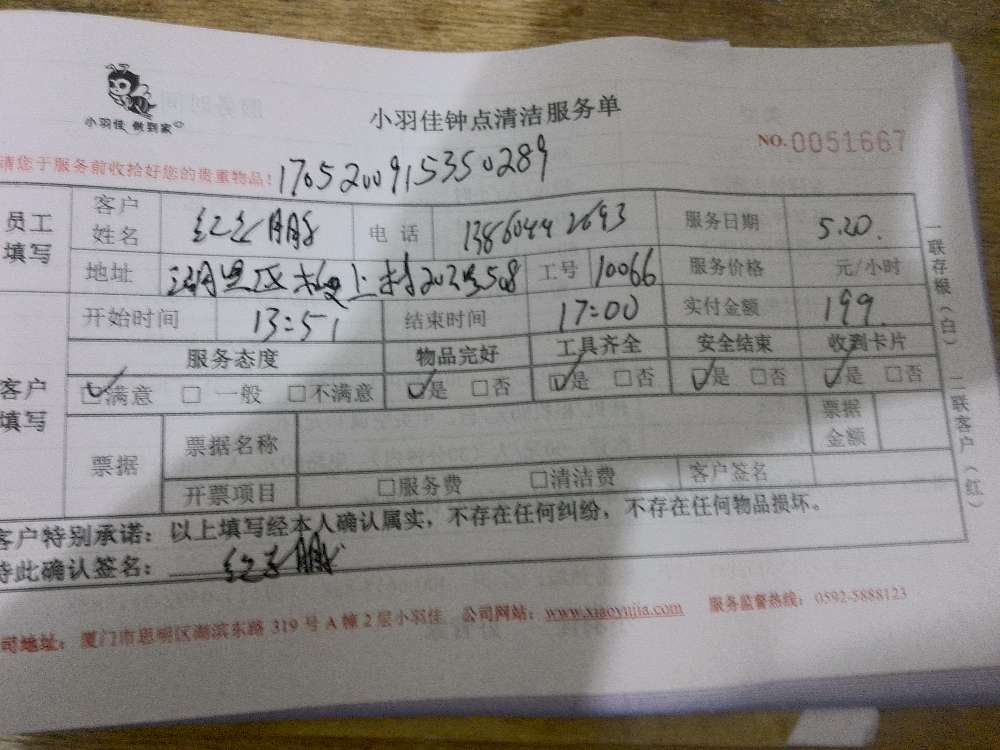 小羽佳 做到家
小羽佳钟点清洁服务单
NO.0051667
请您于服务前收拾好您的贵重物品！ 17052009153350289
员工填写 客户姓名 鹏 电话 13860442693 服务日期 5.20.
地址 湖里区 上村202号508 工号 10066 服务价格 元/小时
开始时间 13:51 结束时间 17:00 实付金额 199.
客户填写 服务态度 物品完好 工具齐全 安全结束 收到卡片
☑满意 □ 一般 □不满意 ☑是 □否 ☑是 □否 ☑是 □否 ☑是 □否
票据 票据名称 票据金额
开票项目 □服务费 □清洁费 客户签名
客户特别承诺：以上填写经本人确认属实，不存在任何纠纷，不存在任何物品损坏。
特此确认签名： 鹏
公司地址：厦门市思明区湖滨东路 319 号 A 幢 2 层小羽佳 公司网站：www.xiaoyujia.com 服务监督热线：0592-5888123
一联存根（白） 二联客户（红）